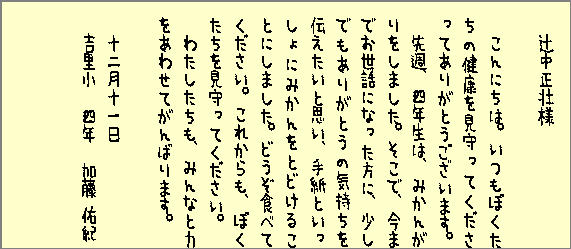 辻中正壮様
こんにちは。いつもぼくた
ちの健康を見守ってくださ
ってありがとうございます。
先週、四年生は、みかんが
りをしました。そこで、今ま
でお世話になった方に、少し
でもありがとうの気持ちを
伝えたいと思い、手紙といっ
しょにみかんをとどけるこ
とにしました。どうぞ食べて
ください。これからも、ぼく
たちを見守ってください。
わたしたちも、みんなと力
をあわせてがんばります。
十二月十一日
吉里小 四年 加藤 佑紀